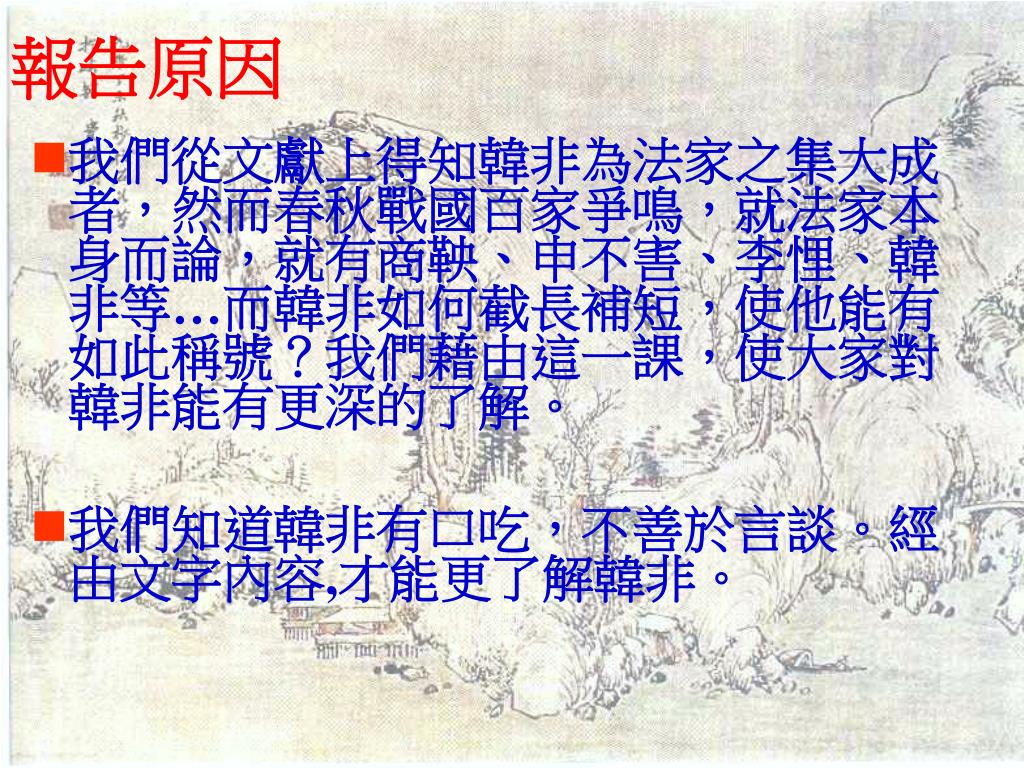 報告原因
我們從文獻上得知韓非為法家之集大成
者，然而春秋戰國百家爭鳴，就法家本
身而論，就有商鞅、申不害、李悝、韓
非等…而韓非如何截長補短，使他能有
如此稱號？我們藉由這一課，使大家對
韓非能有更深的了解。
我們知道韓非有口吃，不善於言談。經
由文字內容,才能更了解韓非。